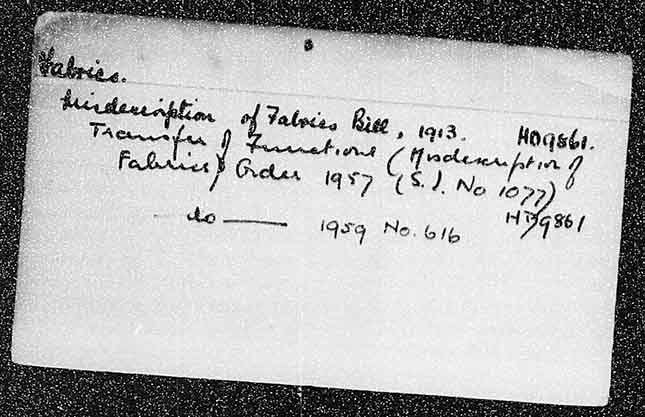 Fabrics.
Misdescription of Fabrics Bill, 1913. HD9861.
Transfer of Functions (Misdescription of
Fabrics) Order 1957 (S.I. No 1077)
HD9861
do — 1959 No. 616